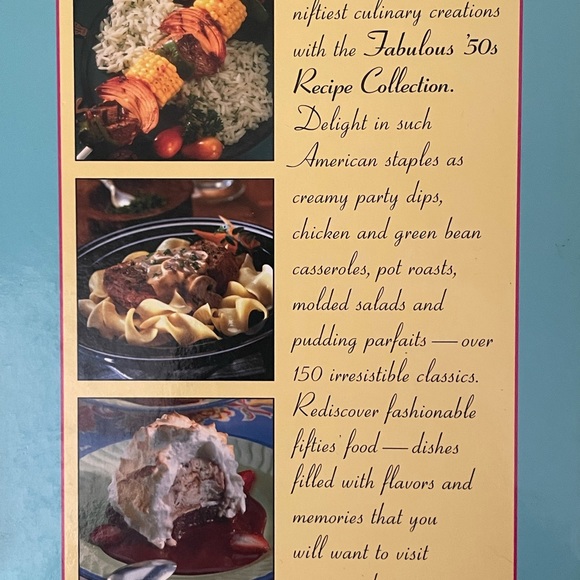 niftiest culinary creations
with the Fabulous '50s
Recipe Collection.
Delight in such
American staples as
creamy party dips,
chicken and green bean
casseroles, pot roasts,
molded salads and
pudding parfaits — over
150 irresistible classics.
Rediscover fashionable
fifties' food — dishes
filled with flavors and
memories that you
will want to visit